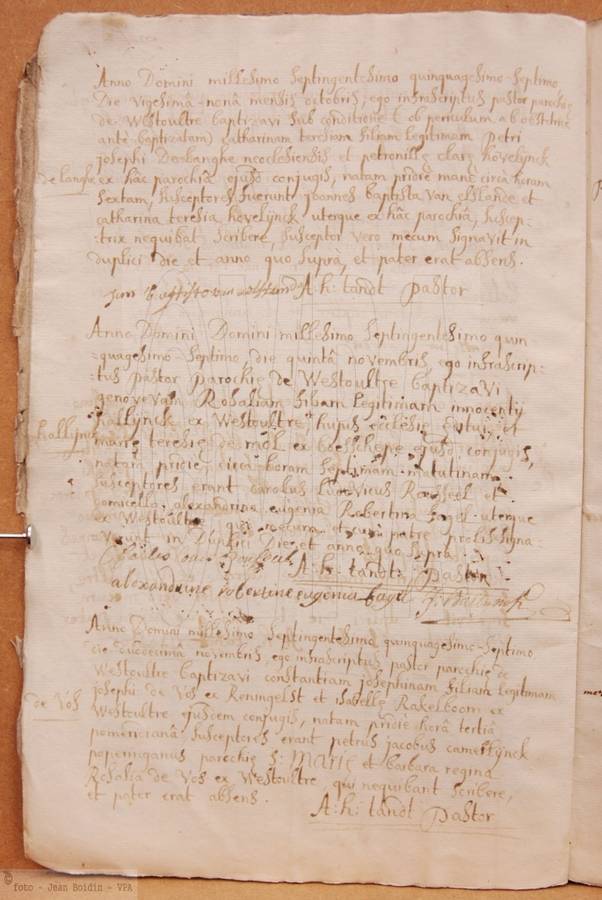 Anno Domini millesimo Septingentesimo quinquagesimo Septimo
Die vigesimâ-nonâ mensis octobris, ego infrascriptus pastor parochię
de Westoultre baptizavi sub conditione (ob periculum ab obstetrice
antè-baptizatam) catharinam teresiam filiam legitimam petri
josephi Deslanghe neoclesiensis et petronillę clarę hovelÿnck
de langhe
ex hâc parochiâ ejusd. conjugis, natam pridie mane circà horam
sextam, susceptores fuerunt joannes baptista van Elslande et
catharina teresia hovelÿnck uterque ex hâc parochiâ, suscep-
:trix nequibat scribere, susceptor vero mecum signavit in
duplici die et anno quo suprà, et pater erat absens.
A: h: tandt pastor
Anno Domini Domini millesimo Septingentesimo quin
:quagesimo Septimo die quintâ novembris ego infrascrip-
:tus pastor parochię de Westoultre baptizavi
genovevam Rosaliam filiam legitimam innocentij
hallÿnck
hallÿnck ex Westoultre hujus ecclesię et
marię teresię de mol ex boeschepe ejusd. conjugis,
natam pridie circà horam septimam matutinam.
susceptores erant carolus Ludovicus et
domicella alexandrina eugenia Robertina fagel uterque
ex Westoultre qui mecum et cum patre prolis signa-
:verunt in Duplici Die et anno quo supra
A: h: tandt pastor
alexandrine robertine eugenia fagel
Anno Domini millesimo Septingentesimo quinquagesimo-Septimo
die duodecimâ novembris, ego infrascriptus pastor parochię de
Westoultre baptizavi constantiam josephinam filiam legitimam
de Vos
josephi de Vos ex Reningelst et isabellę Rakelboom ex
Westoultre ejusdem conjugis, natam pridie horâ tertiâ
pomeridianâ, susceptores erant petrus jacobus camerlÿnck
poperinganus parochię S: Marię et barbara regina
Rosalia de Vos ex Westoultre, qui nequibant scribere,
et pater erat absens.
A: h: tandt pastor
© foto - Jean Boidin - VPA